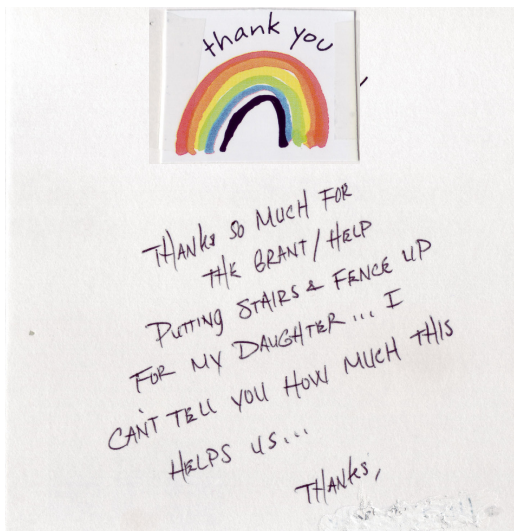 thank you
THANKS SO MUCH FOR
THE GRANT/HELP
PUTTING STAIRS & FENCE UP
FOR MY DAUGHTER... I
CAN'T TELL YOU HOW MUCH THIS
HELPS US...
THANKS,